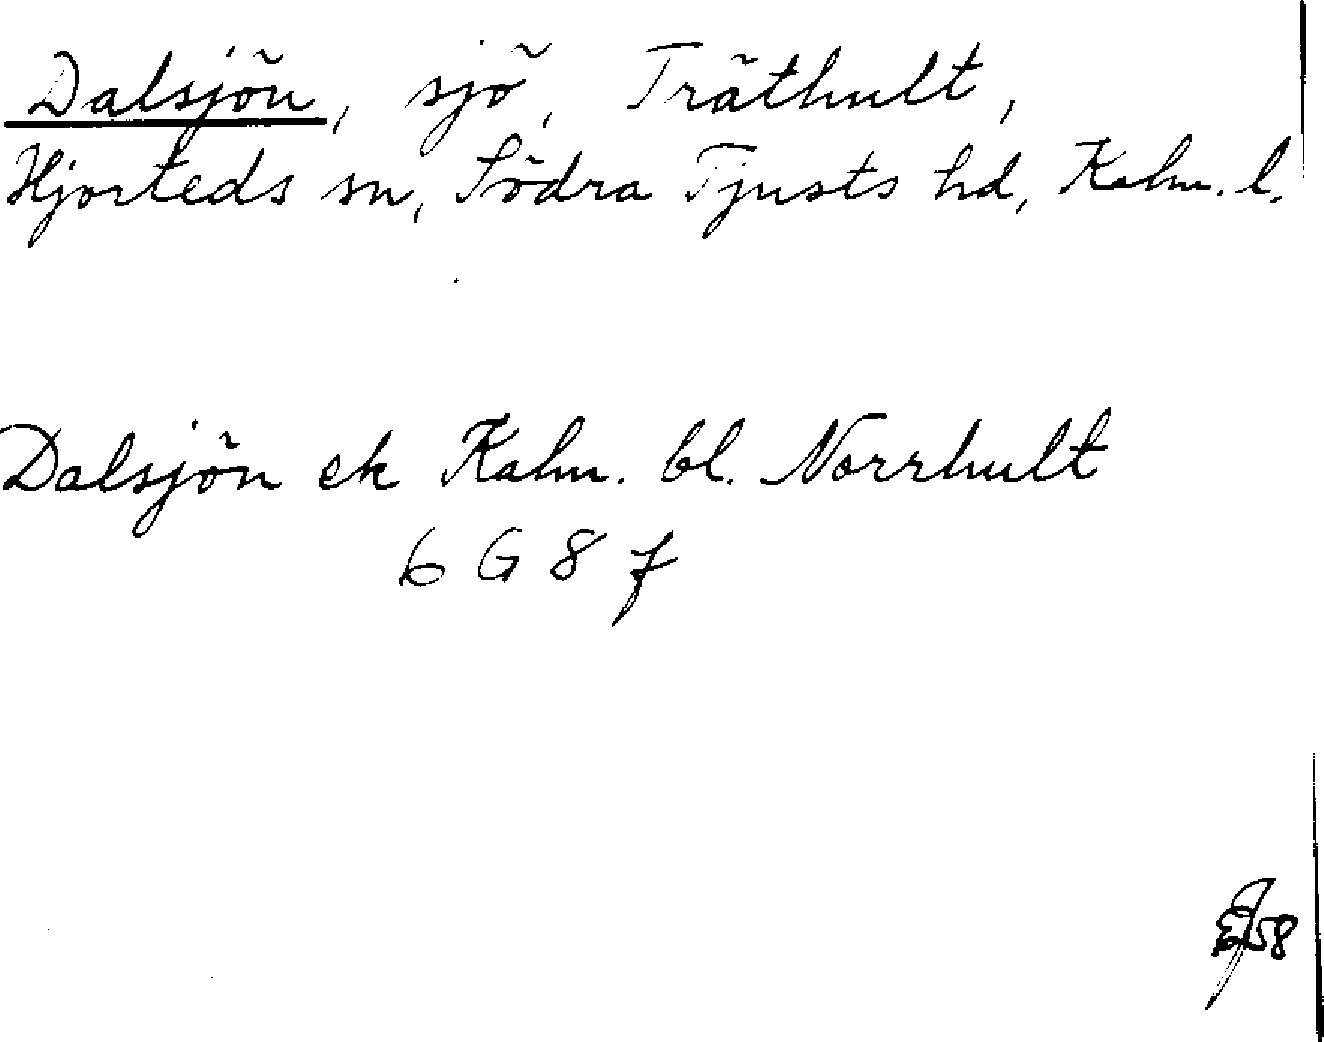 Dalsjön, sjö, Träthult,
Hjorteds sn, Södra Tjusts hd, Kalm. l.
Dalsjön ek Kalm. bl. Norrhult
6 G 8 f